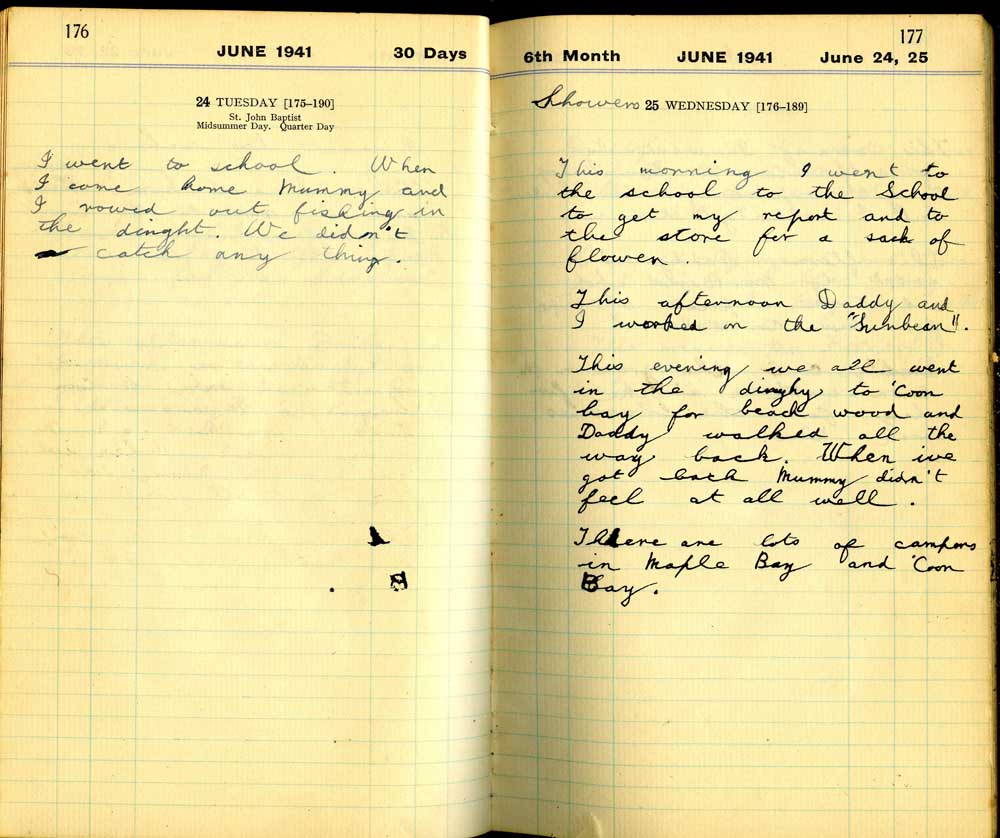 176
JUNE 1941 30 Days
24 TUESDAY [175–190]
St. John Baptist
Midsummer Day. Quarter Day
I went to school. When
I come home Mummy and
I rowed out fishing in
the dinght. We didn't
catch any thing.
177
6th Month JUNE 1941 June 24, 25
Showers 25 WEDNESDAY [176–189]
This morning I went to
the school to the School
to get my report and to
the store for a sack of
flower.
This afternoon Daddy and
I worked on the "Sunbeam".
This evening we all went
in the dinghy to 'Coon
bay for beach wood and
Daddy walked all the
way back. When we
got back Mummy didn't
feel at all well.
There are lots of campers
in Maple Bay and 'Coon
Bay.